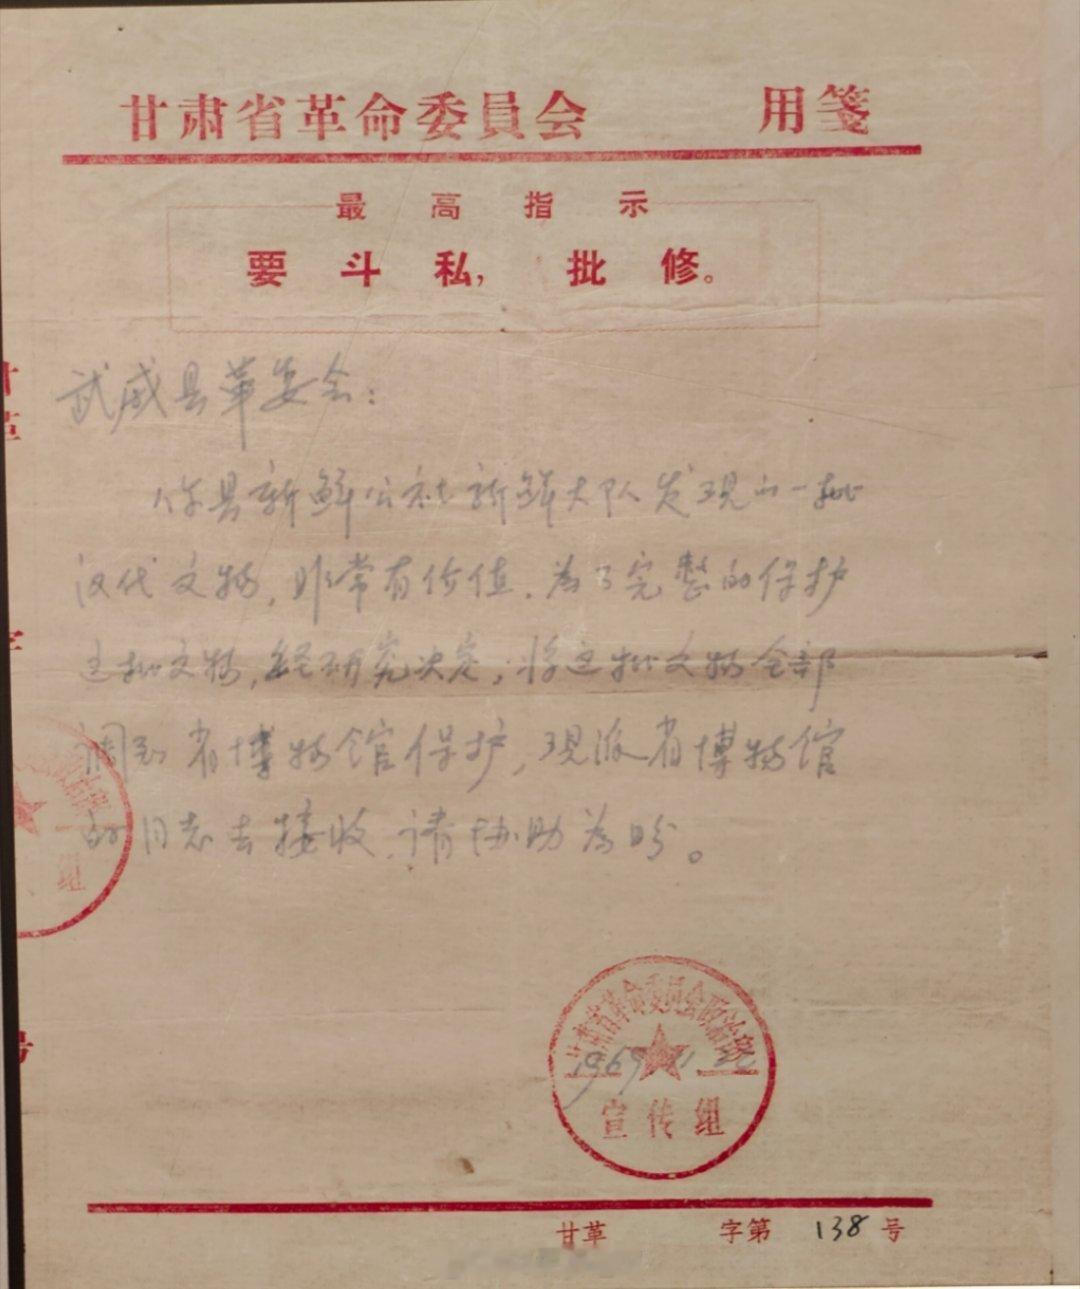 甘肃省革命委員会 用箋
最高指示
要斗私，批修。
武威县革委会：
你县新鲜公社新鲜大队发现的一批
汉代文物，非常有价值．为了完整的保护
这批文物，经研究决定，将这批文物全部
调到省博物馆保护，现派省博物馆
的同志去接收，请协助为盼。
甘肃省革命委员会政治部
1969
宣传组
组
甘革 字第 138 号